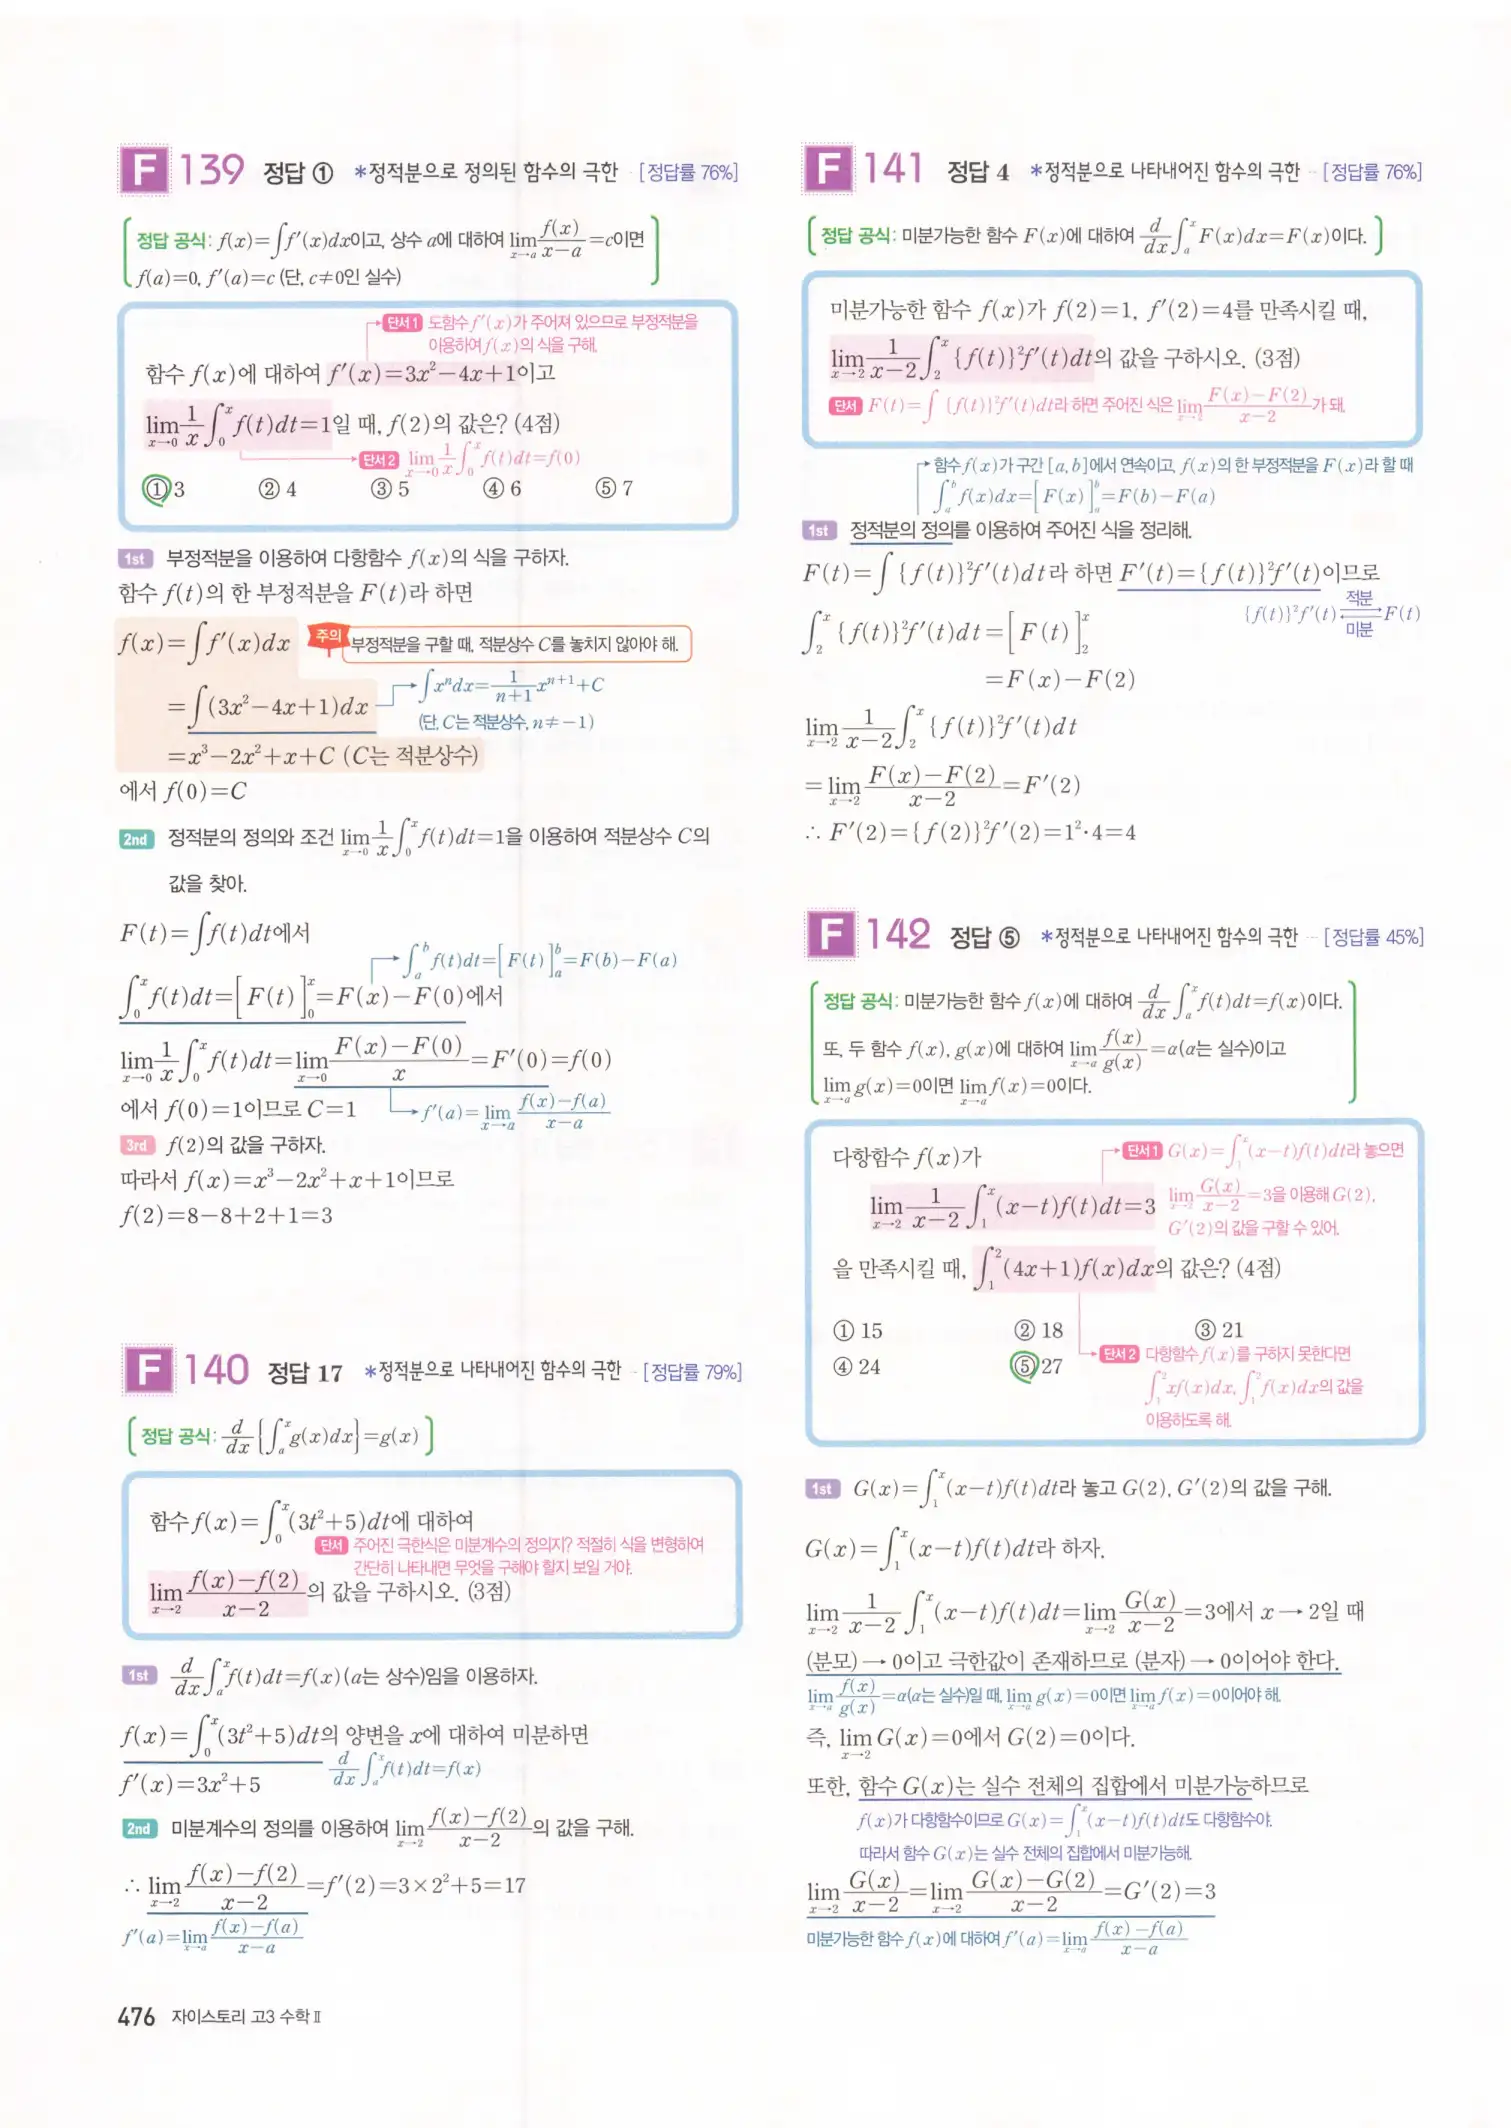 F 139 정답 ① *정적분으로 정의된 함수의 극한 [정답률 76%]
정답 공식: f(x)=∫f'(x)dx이고, 상수 a에 대하여 lim_{x→a} f(x)/(x-a)=c이면
f(a)=0, f'(a)=c (단, c≠0인 실수)
단서1 도함수 f'(x)가 주어져 있으므로 부정적분을
이용하여 f(x)의 식을 구해.
함수 f(x)에 대하여 f'(x)=3x²-4x+1이고
lim_{x→0} 1/x ∫_0^x f(t)dt=1일 때, f(2)의 값은? (4점)
단서2 lim_{x→0} 1/x ∫_0^x f(t)dt=f(0)
① 3 ② 4 ③ 5 ④ 6 ⑤ 7
1st 부정적분을 이용하여 다항함수 f(x)의 식을 구하자.
함수 f(t)의 한 부정적분을 F(t)라 하면
f(x)=∫f'(x)dx
주의 부정적분을 구할 때, 적분상수 C를 놓치지 않아야 해.
=∫(3x²-4x+1)dx
∫xⁿdx=1/(n+1) xⁿ⁺¹+C
(단, C는 적분상수, n≠-1)
=x³-2x²+x+C (C는 적분상수)
에서 f(0)=C
2nd 정적분의 정의와 조건 lim_{x→0} 1/x ∫_0^x f(t)dt=1을 이용하여 적분상수 C의
값을 찾아.
F(t)=∫f(t)dt에서
∫_a^b f(t)dt=[F(t)]_a^b=F(b)-F(a)
∫_0^x f(t)dt=[F(t)]_0^x=F(x)-F(0)에서
lim_{x→0} 1/x ∫_0^x f(t)dt=lim_{x→0} (F(x)-F(0))/x=F'(0)=f(0)
에서 f(0)=1이므로 C=1
f'(a)=lim_{x→a} (f(x)-f(a))/(x-a)
3rd f(2)의 값을 구하자.
따라서 f(x)=x³-2x²+x+1이므로
f(2)=8-8+2+1=3
F 140 정답 17 *정적분으로 나타내어진 함수의 극한 [정답률 79%]
정답 공식: d/dx{∫_a^x g(x)dx}=g(x)
함수 f(x)=∫_0^x (3t²+5)dt에 대하여
단서 주어진 극한식은 미분계수의 정의지? 적절히 식을 변형하여
간단히 나타내면 무엇을 구해야 할지 보일 거야.
lim_{x→2} (f(x)-f(2))/(x-2)의 값을 구하시오. (3점)
1st d/dx ∫_a^x f(t)dt=f(x)(a는 상수)임을 이용하자.
f(x)=∫_0^x (3t²+5)dt의 양변을 x에 대하여 미분하면
d/dx ∫_a^x f(t)dt=f(x)
f'(x)=3x²+5
2nd 미분계수의 정의를 이용하여 lim_{x→2} (f(x)-f(2))/(x-2)의 값을 구해.
∴ lim_{x→2} (f(x)-f(2))/(x-2)=f'(2)=3×2²+5=17
f'(a)=lim_{x→a} (f(x)-f(a))/(x-a)
476 자이스토리 고3 수학Ⅱ
F 141 정답 4 *정적분으로 나타내어진 함수의 극한 [정답률 76%]
정답 공식: 미분가능한 함수 F(x)에 대하여 d/dx ∫_a^x F(x)dx=F(x)이다.
미분가능한 함수 f(x)가 f(2)=1, f'(2)=4를 만족시킬 때,
lim_{x→2} 1/(x-2) ∫_2^x {f(t)}²f'(t)dt의 값을 구하시오. (3점)
단서 F(t)=∫{f(t)}²f'(t)dt라 하면 주어진 식은 lim_{x→2} (F(x)-F(2))/(x-2)가 돼.
함수 f(x)가 구간 [a, b]에서 연속이고, f(x)의 한 부정적분을 F(x)라 할 때
∫_a^b f(x)dx=[F(x)]_a^b=F(b)-F(a)
1st 정적분의 정의를 이용하여 주어진 식을 정리해.
F(t)=∫{f(t)}²f'(t)dt라 하면 F'(t)={f(t)}²f'(t)이므로
{f(t)}²f'(t) 적분⇄미분 F(t)
∫_2^x {f(t)}²f'(t)dt=[F(t)]_2^x
=F(x)-F(2)
lim_{x→2} 1/(x-2) ∫_2^x {f(t)}²f'(t)dt
=lim_{x→2} (F(x)-F(2))/(x-2)=F'(2)
∴ F'(2)={f(2)}²f'(2)=1²·4=4
F 142 정답 ⑤ *정적분으로 나타내어진 함수의 극한 [정답률 45%]
정답 공식: 미분가능한 함수 f(x)에 대하여 d/dx ∫_a^x f(t)dt=f(x)이다.
또, 두 함수 f(x), g(x)에 대하여 lim_{x→a} f(x)/g(x)=α(α는 실수)이고
lim_{x→a} g(x)=0이면 lim_{x→a} f(x)=0이다.
다항함수 f(x)가
단서1 G(x)=∫_1^x (x-t)f(t)dt라 놓으면
lim_{x→2} G(x)/(x-2)=3을 이용해 G(2),
G'(2)의 값을 구할 수 있어.
lim_{x→2} 1/(x-2) ∫_1^x (x-t)f(t)dt=3
을 만족시킬 때, ∫_1^2 (4x+1)f(x)dx의 값은? (4점)
① 15 ② 18 ③ 21
④ 24 ⑤ 27
단서2 다항함수 f(x)를 구하지 못한다면
∫_1^2 xf(x)dx, ∫_1^2 f(x)dx의 값을
이용하도록 해.
1st G(x)=∫_1^x (x-t)f(t)dt라 놓고 G(2), G'(2)의 값을 구해.
G(x)=∫_1^x (x-t)f(t)dt라 하자.
lim_{x→2} 1/(x-2) ∫_1^x (x-t)f(t)dt=lim_{x→2} G(x)/(x-2)=3에서 x→2일 때
(분모)→0이고 극한값이 존재하므로 (분자)→0이어야 한다.
lim_{x→a} f(x)/g(x)=α(α는 실수)일 때, lim_{x→a} g(x)=0이면 lim_{x→a} f(x)=0이어야 해.
즉, lim_{x→2} G(x)=0에서 G(2)=0이다.
또한, 함수 G(x)는 실수 전체의 집합에서 미분가능하므로
f(x)가 다항함수이므로 G(x)=∫_1^x (x-t)f(t)dt도 다항함수야.
따라서 함수 G(x)는 실수 전체의 집합에서 미분가능해.
lim_{x→2} G(x)/(x-2)=lim_{x→2} (G(x)-G(2))/(x-2)=G'(2)=3
미분가능한 함수 f(x)에 대하여 f'(a)=lim_{x→a} (f(x)-f(a))/(x-a)